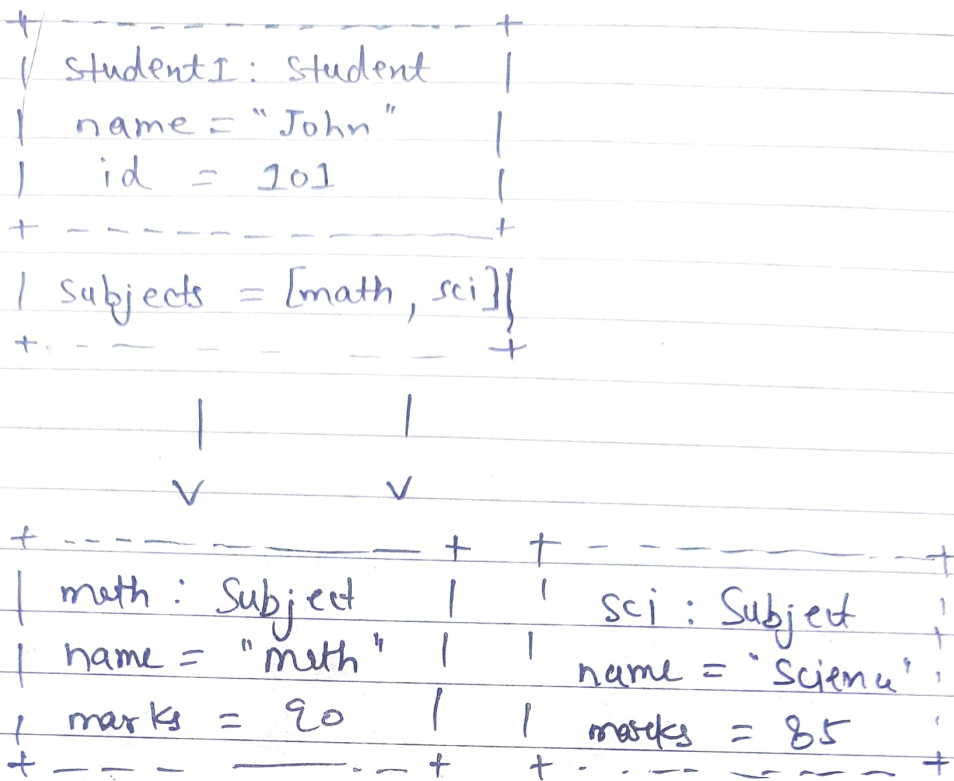 student1 : student
name = "John"
id = 101
subjects = [math, sci]
math : Subject
name = "math"
marks = 90
sci : Subject
name = "Science"
marks = 85